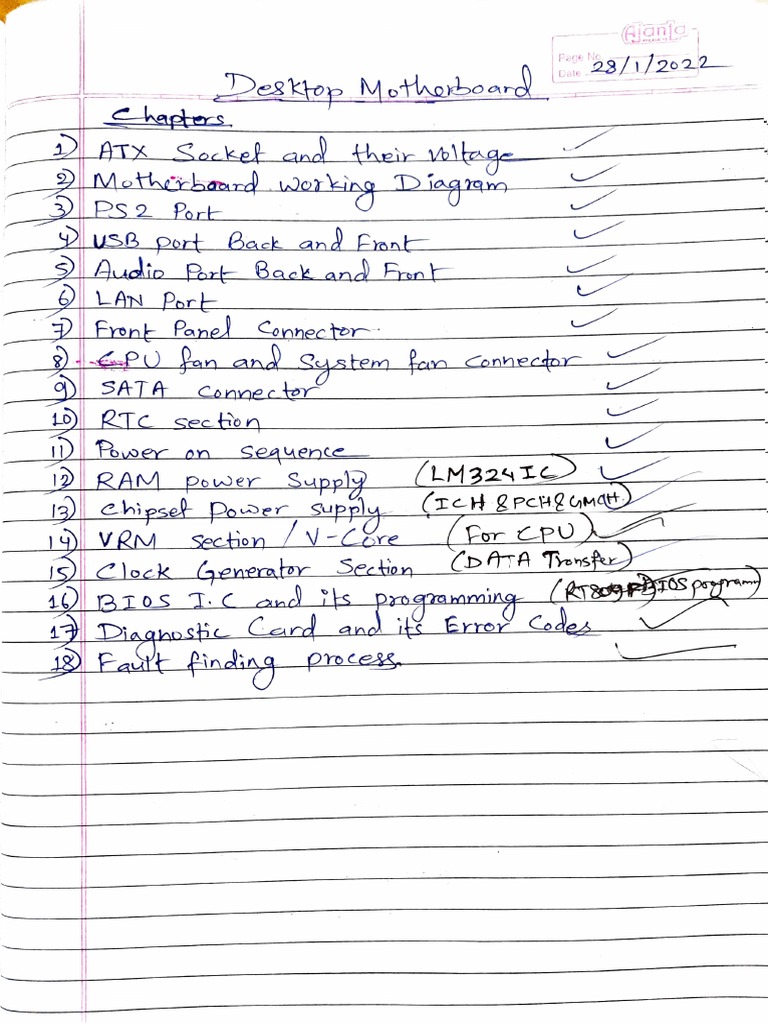 Ajanta
Page No.
Date 28/1/2022
Desktop Motherboard
Chapters
1) ATX Socket and their voltage
2) Motherboard working Diagram
3) PS2 Port
4) USB port Back and Front
5) Audio Port Back and Front
6) LAN Port
7) Front Panel Connector
8) CPU fan and System fan connector
9) SATA connector
10) RTC section
11) Power on sequence
12) RAM power Supply (LM324IC)
13) Chipset Power supply (ICH & PCH & GMCH)
14) VRM section / V-Core (For CPU)
15) Clock Generator Section (DATA Transfer)
16) BIOS I.C and its programming (BIOS programm)
17) Diagnostic Card and its Error Codes
18) Fault finding process.